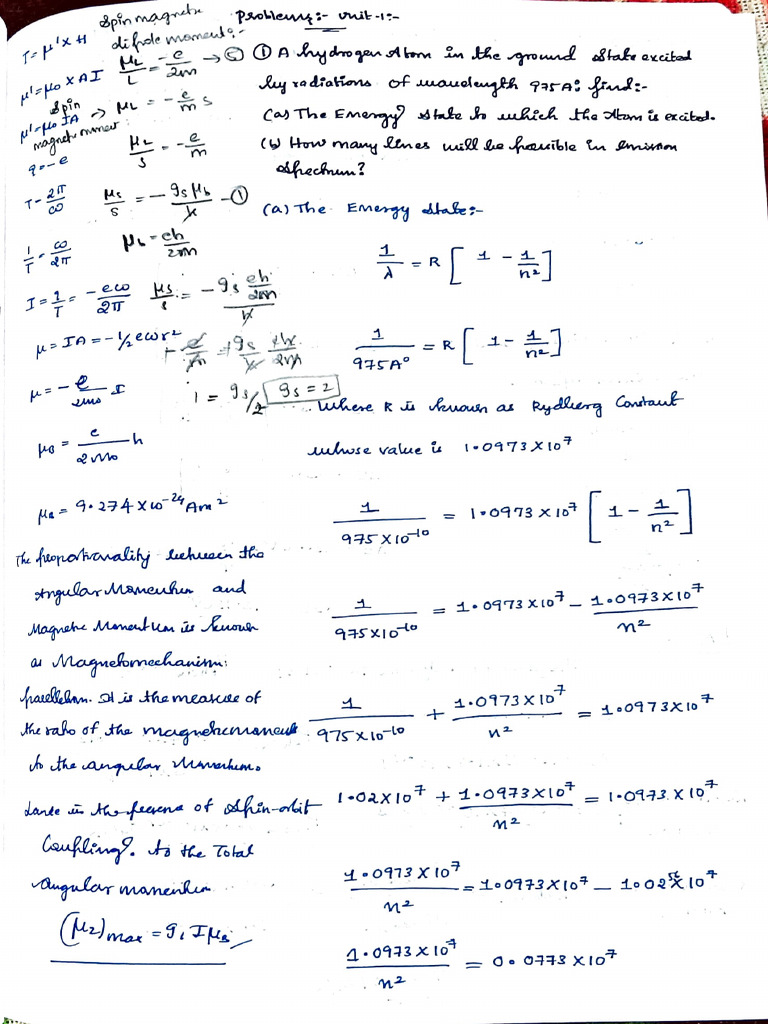 Spin magnetic
dipole moment:-
T = μ' × H
μL/L = -e/2m → ⑤
μ' = μ0 × AI
Spin
μ' = μ0 IA → μL = -e/m s
magnetic moment:
q = -e
μL/s = -e/m
T = 2π/ω
μs/s = - gs μb/ħ - ①
1/T = ω/2π
μb = eh/2m
I = q/T = -eω/2π
μs/s = - gs eh/2m/ħ
μ = IA = -1/2 eωr²
- e/m = + gs/ħ eħ/2m
μ = - e/2m0 I
1 = gs/2 gs = 2
μB = e/2m0 h
μB = 9.274 × 10-24 Am2
The proportionality between the
Angular Momentum and
Magnetic Momentum is known
as Magnetomechanism:
parellelism. It is the measure of
the ratio of the magneticmoment
to the angular Momentum.
in the of spin-orbit
Coupling. to the Total
angular momentum
(μz)max = gI I μB
Problems:- Unit-1:-
① A hydrogen Atom in the ground state excited
by radiations of wavelength 975A° find:-
(a) The Energy state to which the Atom is excited.
(b) How many lines will be possible in emission
spectrum?
(a) The Energy state:-
1/λ = R [ 1 - 1/n2 ]
1/975A° = R [ 1 - 1/n2 ]
Where R is known as Rydberg Constant
whose value is 1.0973 × 10⁷
1/975 × 10-10 = 1.0973 × 10⁷ [ 1 - 1/n2 ]
1/975 × 10-10 = 1.0973 × 10⁷ - 1.0973 × 10⁷/n2
1/975 × 10-10 + 1.0973 × 10⁷/n2 = 1.0973 × 10⁷
1.02 × 10⁷ + 1.0973 × 10⁷/n2 = 1.0973 × 10⁷
1.0973 × 10⁷/n2 = 1.0973 × 10⁷ - 1.02 × 10⁷
1.0973 × 10⁷/n2 = 0.0773 × 10⁷